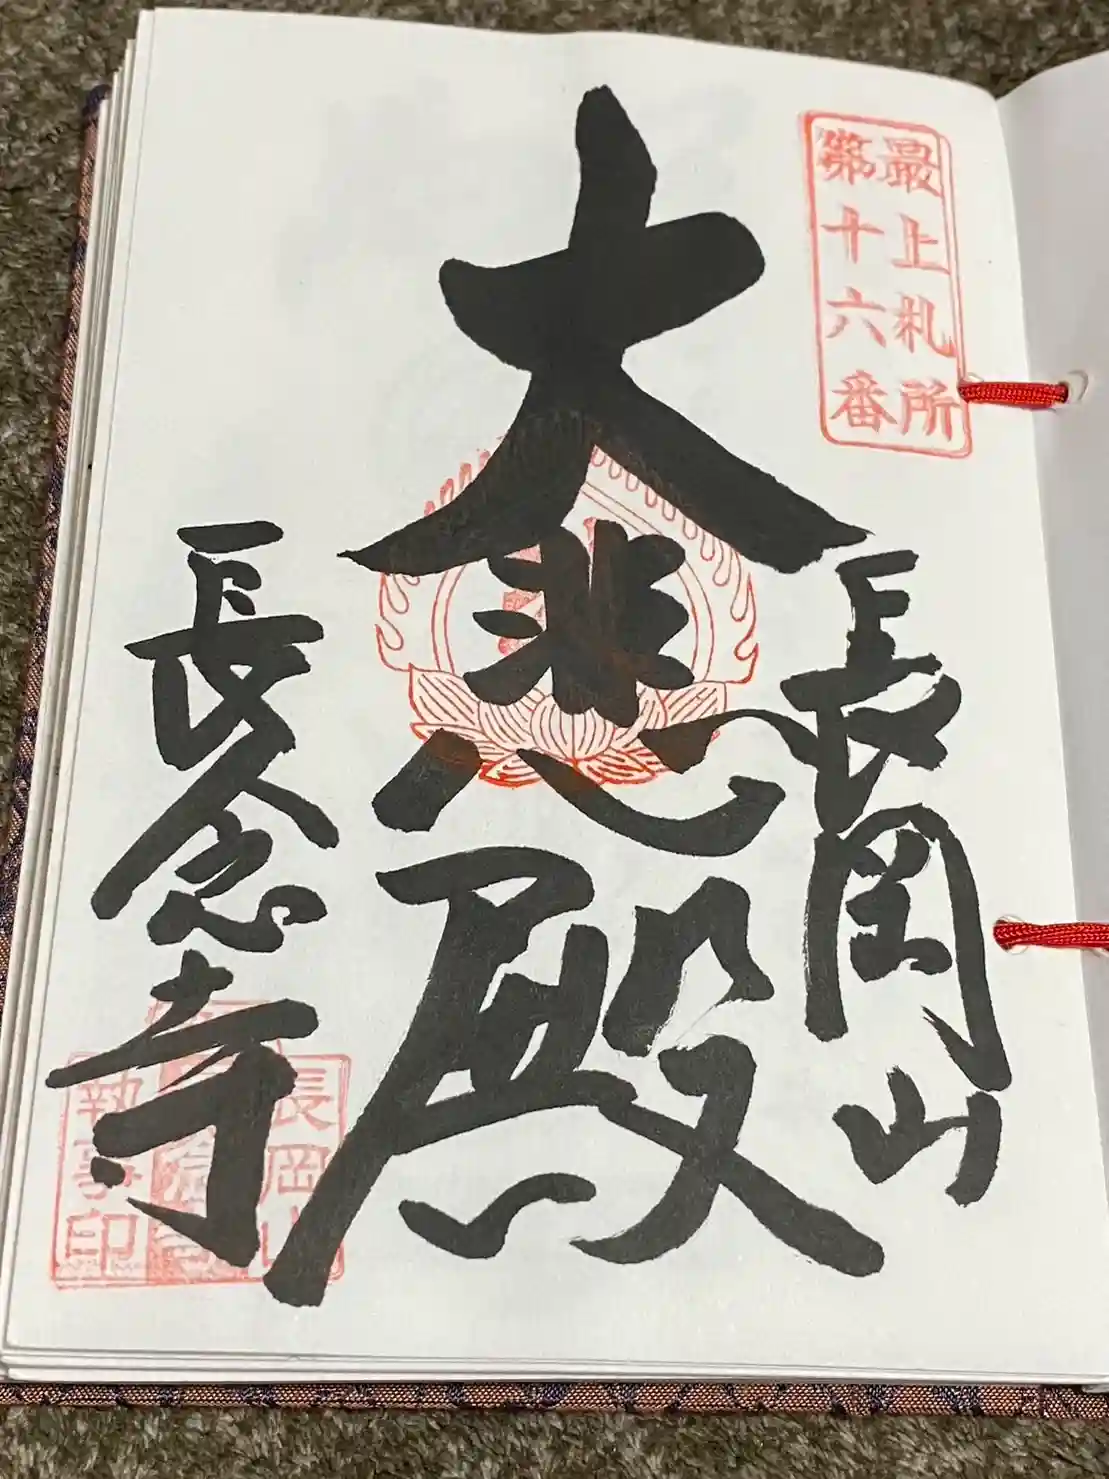 最上札所
第十六番
長岡山
大悲殿
長念寺
長岡山
執事印